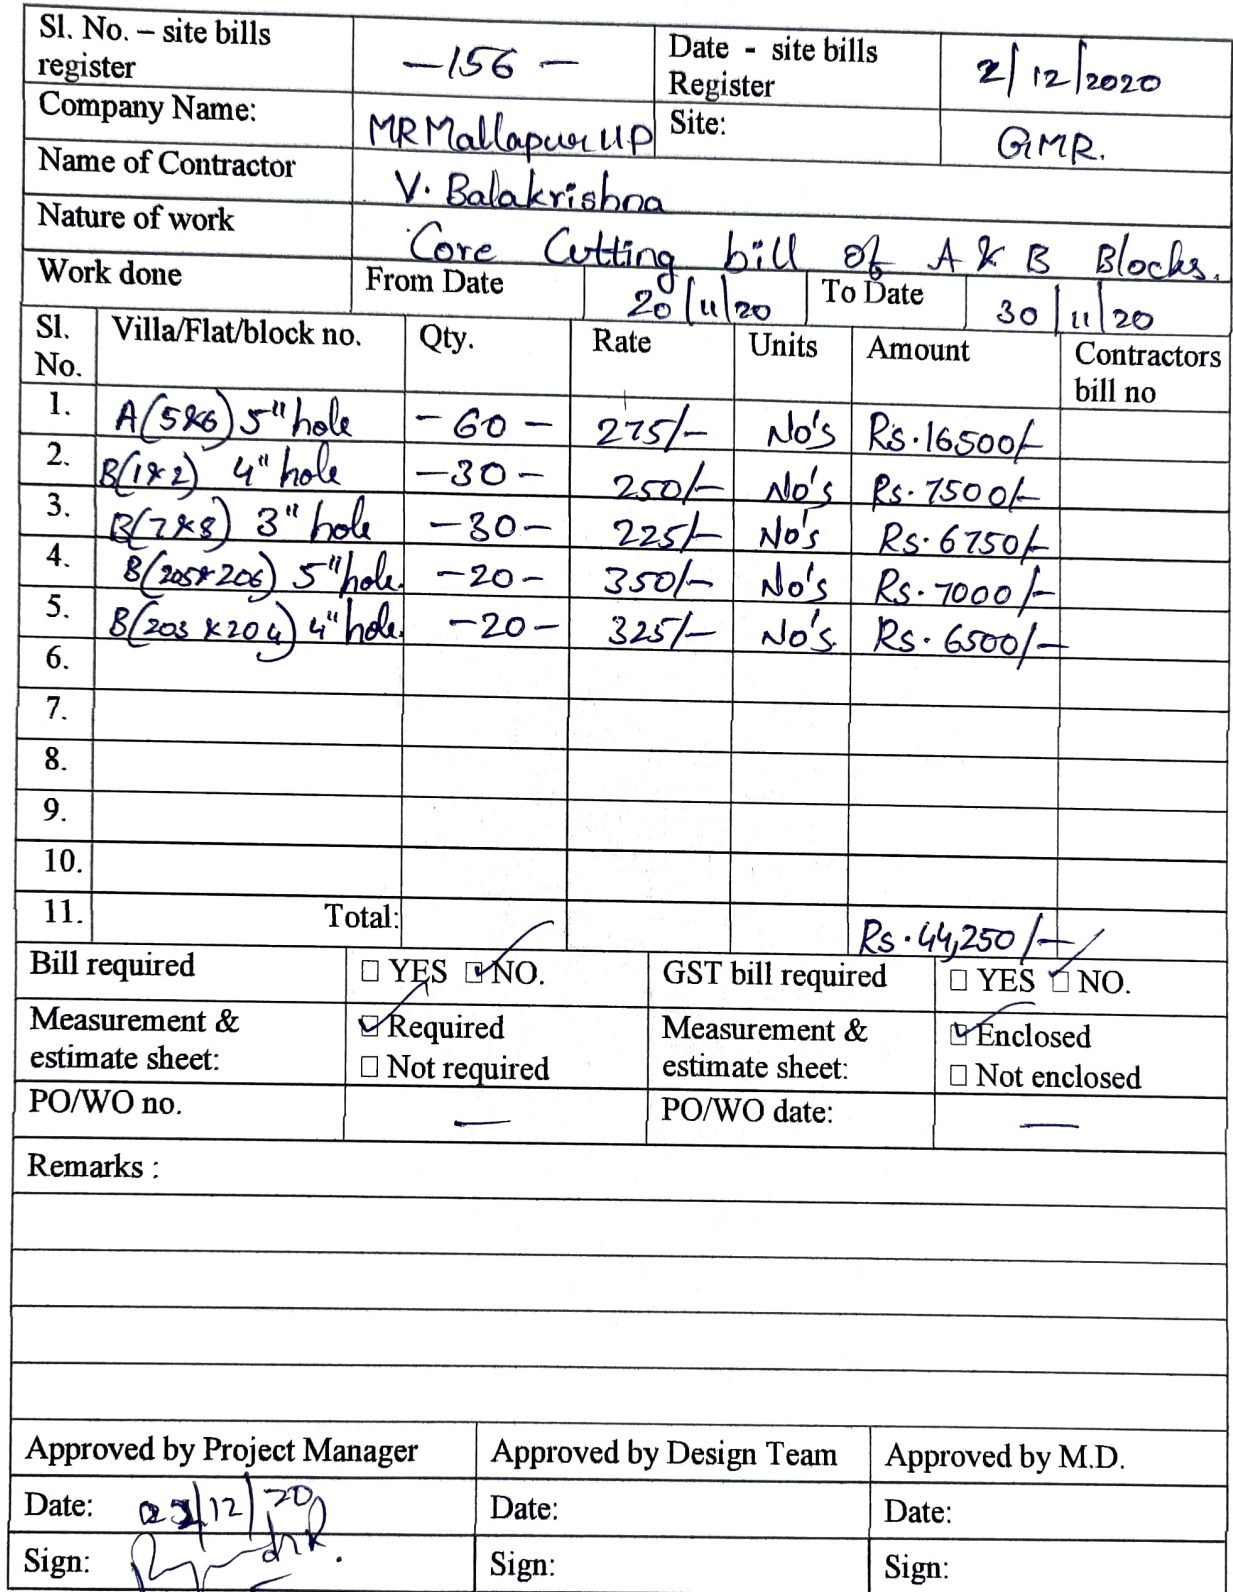 Sl. No. – site bills register —156— Date - site bills Register 2/12/2020
Company Name: MR Mallapur LLP Site: GMR.
Name of Contractor V. Balakrishna
Nature of work Core Cutting bill of A & B Blocks.
Work done From Date 20/11/20 To Date 30/11/20
Sl. No. Villa/Flat/block no. Qty. Rate Units Amount Contractors bill no
1. A(5&6) 5" hole -60- 275/- No's Rs.16500/-
2. B(1&2) 4" hole -30- 250/- No's Rs.7500/-
3. B(7&8) 3" hole -30- 225/- No's Rs.6750/-
4. B(205&206) 5" hole. -20- 350/- No's Rs.7000/-
5. B(203 &204) 4" hole. -20- 325/- No's. Rs.6500/-
6.
7.
8.
9.
10.
11. Total: Rs.44,250/-
Bill required ☐ YES ☑ NO. GST bill required ☐ YES ☑ NO.
Measurement & estimate sheet: ☑ Required Measurement & estimate sheet: ☑ Enclosed
☐ Not required ☐ Not enclosed
PO/WO no. — PO/WO date: —
Remarks :
Approved by Project Manager Approved by Design Team Approved by M.D.
Date: /12/20 Date: Date:
Sign: Sign: Sign: